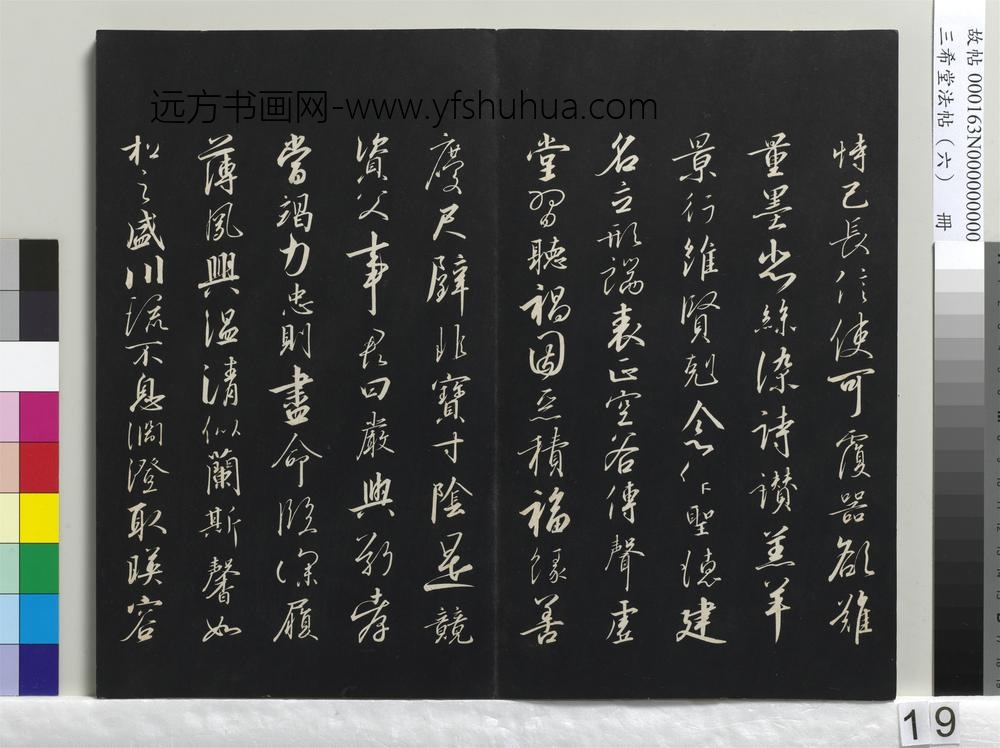 远方书画网-www.yfshuhua.com
恃己長信使可覆器欲難
量墨悲絲染詩讚羔羊
景行維賢剋念作聖德建
名立形端表正空谷傳聲虛
堂習聽禍因惡積福緣善
慶尺璧非寶寸陰是競
資父事君曰嚴與敬孝
當竭力忠則盡命臨深履
薄夙興溫清似蘭斯馨如
松之盛川流不息淵澄取暎容
故帖 000163N000000000
三希堂法帖（六） 冊
19